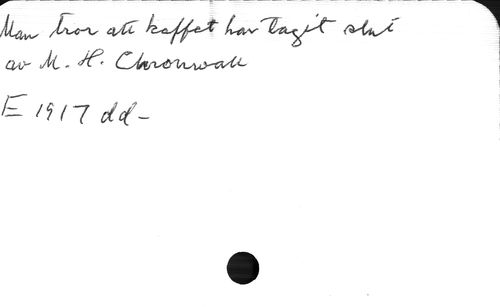 Man tror att kaffet har tagit slut
av M. H. Chronwall
E 1917 dd-